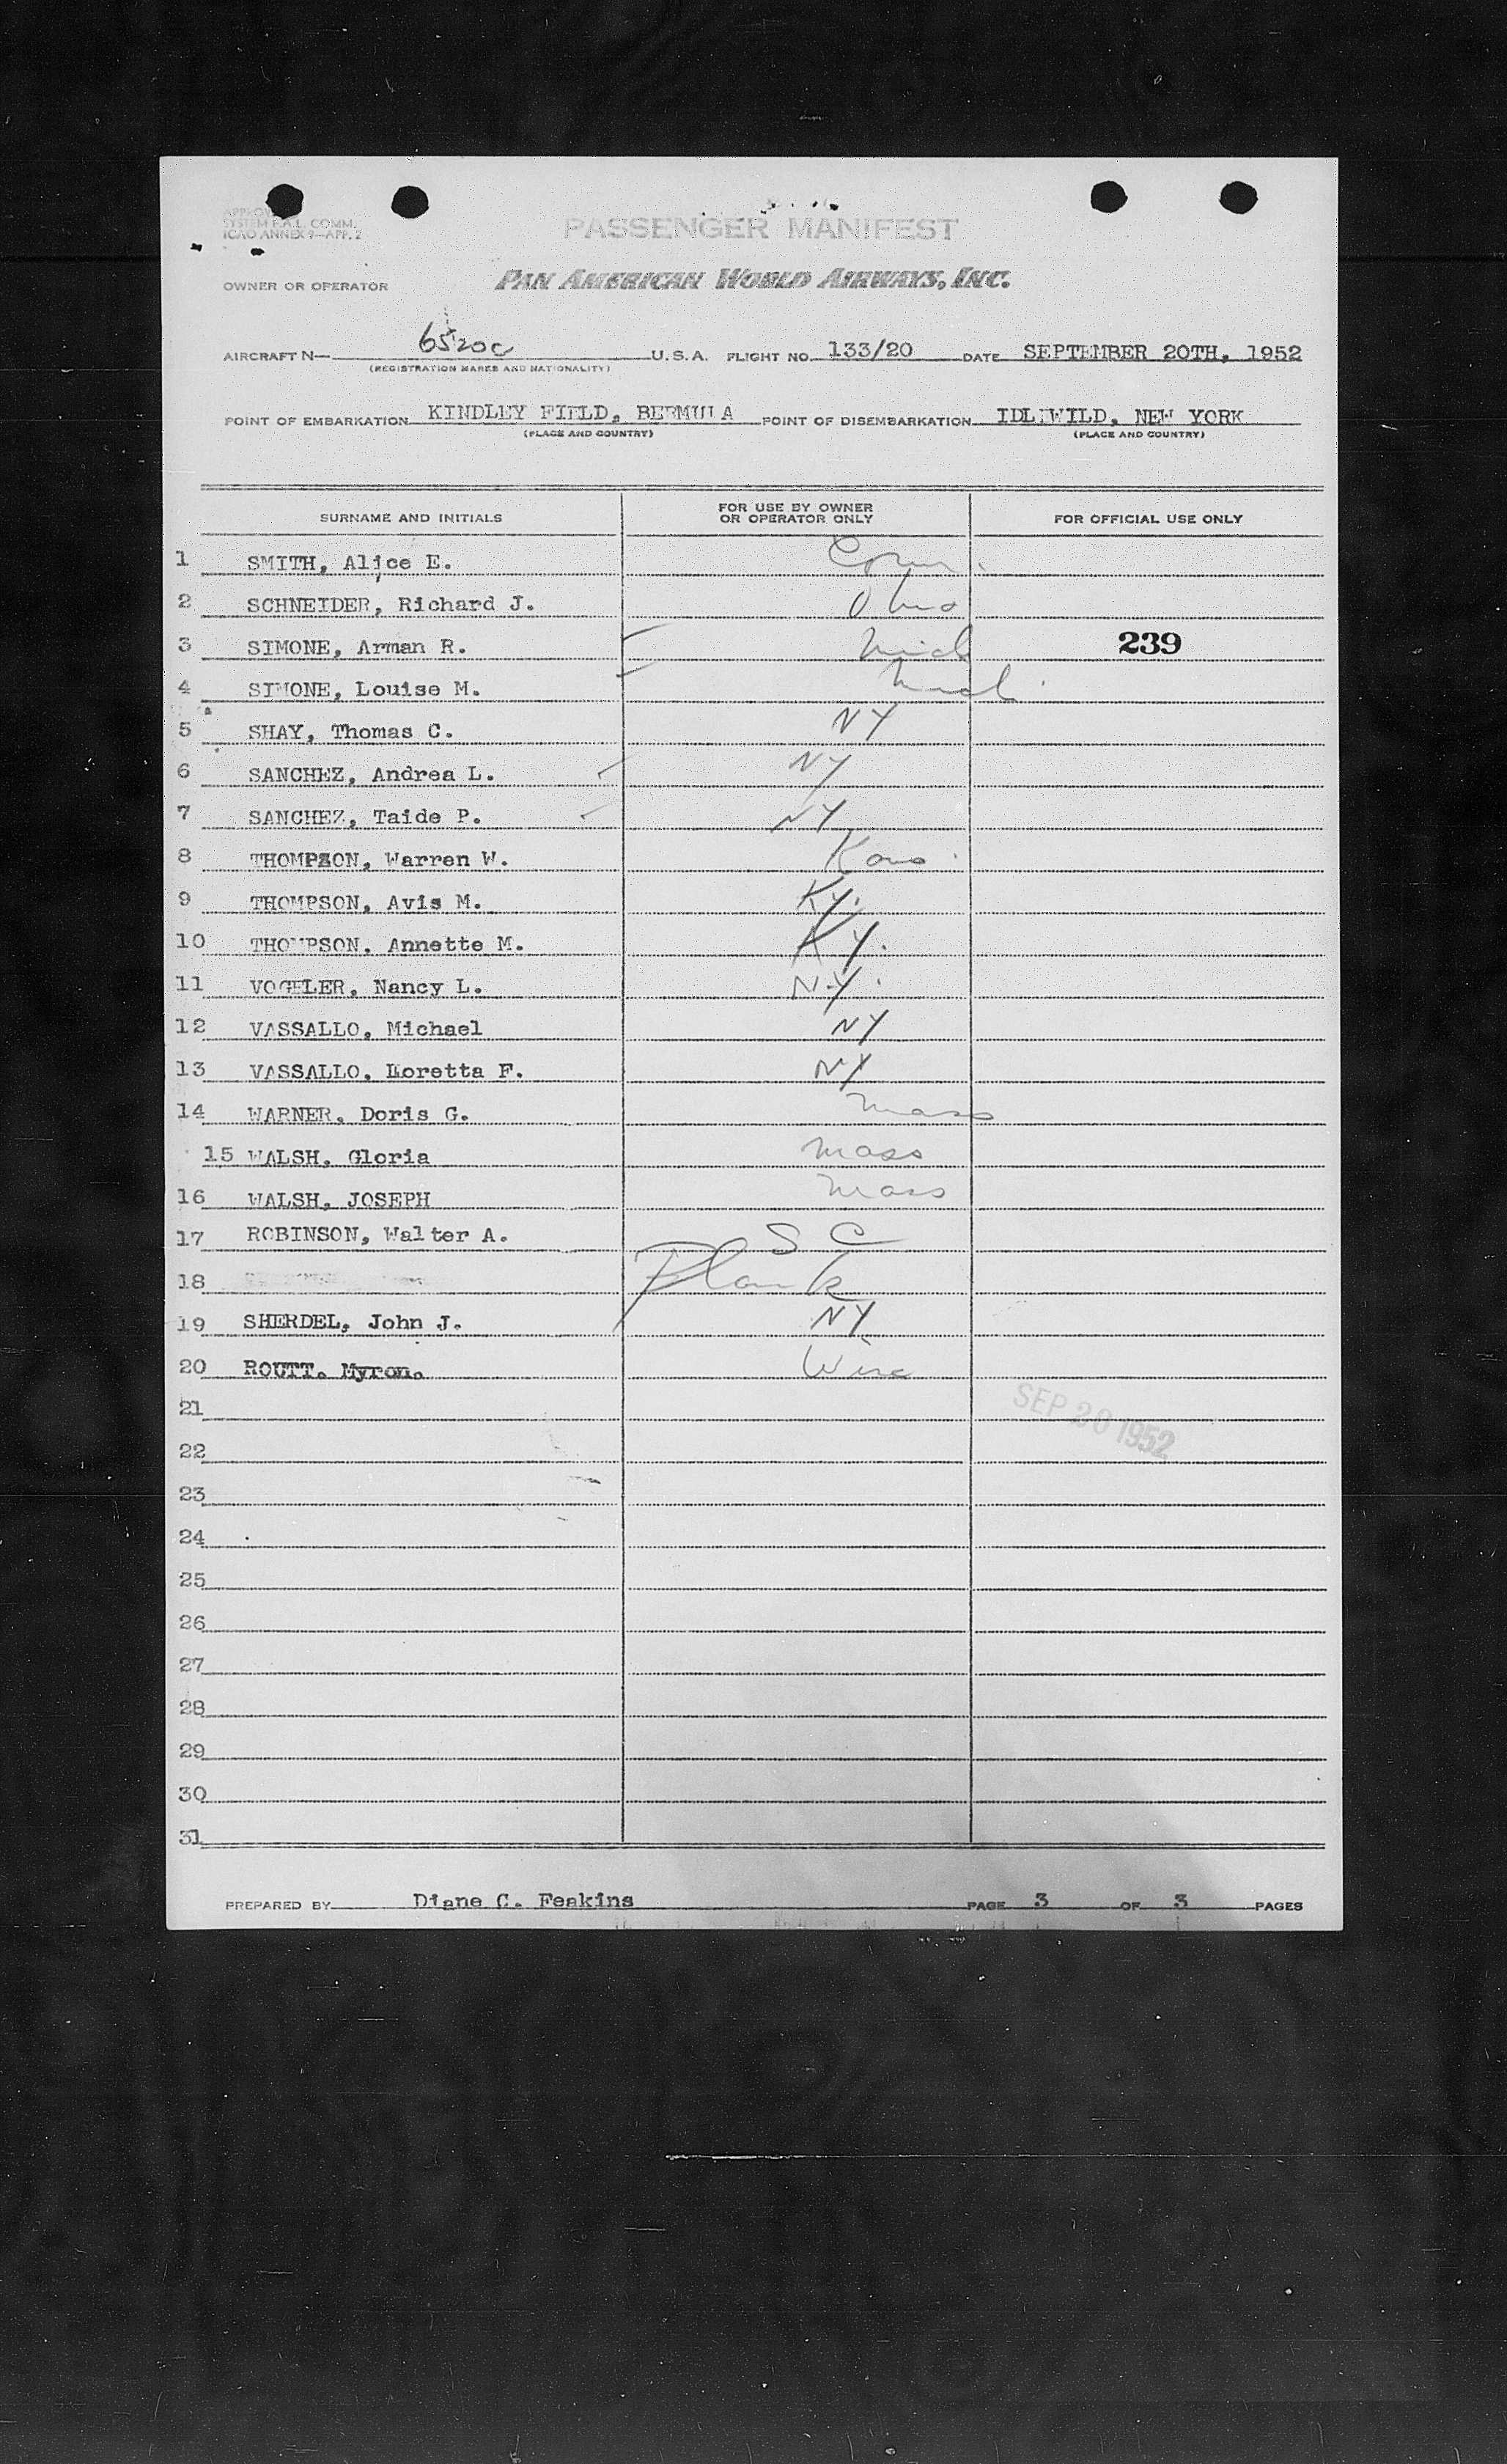 SYSTEM P.A.L. COMM.
ICAO ANNEX 9—APP. 2
PASSENGER MANIFEST
OWNER OR OPERATOR PAN AMERICAN WORLD AIRWAYS, INC.
AIRCRAFT N— 6520C U.S.A. FLIGHT NO. 133/20 DATE SEPTEMBER 20TH, 1952
(REGISTRATION MARKS AND NATIONALITY)
POINT OF EMBARKATION KINDLEY FIELD, BERMUDA POINT OF DISEMBARKATION IDLEWILD, NEW YORK
(PLACE AND COUNTRY) (PLACE AND COUNTRY)
SURNAME AND INITIALS FOR USE BY OWNER OR OPERATOR ONLY FOR OFFICIAL USE ONLY
1 SMITH, Alice E. Conn.
2 SCHNEIDER, Richard J. Ohio
3 SIMONE, Arman R. Mich 239
4 SIMONE, Louise M. Mich
5 SHAY, Thomas C. NY
6 SANCHEZ, Andrea L. NY
7 SANCHEZ, Taide P. NY
8 THOMPSON, Warren W. Kans.
9 THOMPSON, Avis M. Ky.
10 THOMPSON, Annette M. Ky.
11 VOGELER, Nancy L. N.Y.
12 VASSALLO, Michael NY
13 VASSALLO, Loretta F. NY
14 WARNER, Doris G. Mass
15 WALSH, Gloria Mass
16 WALSH, JOSEPH Mass
17 ROBINSON, Walter A. S C
18 Blank
19 SHERDEL, John J. NY
20 ROUTT. Myron. Wisc
21 SEP 20 1952
22
23
24
25
26
27
28
29
30
31
PREPARED BY Diane C. Feakins PAGE 3 OF 3 PAGES